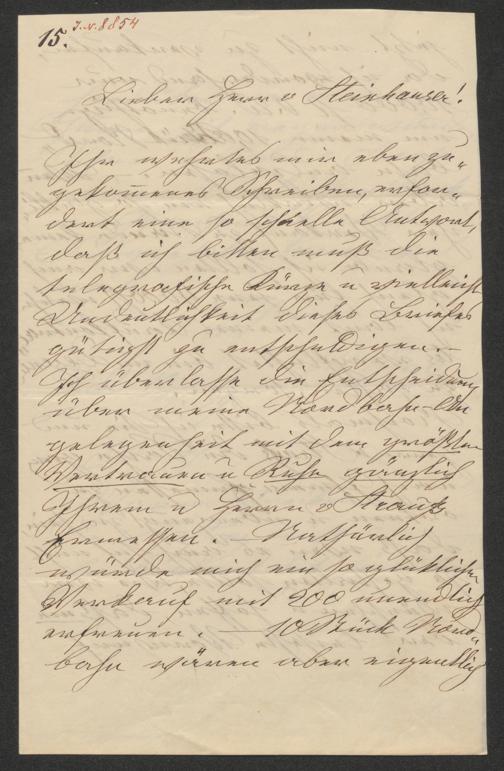 15. J.N. 8854
Lieber Herr v Steinhauser!
Ihr wehrtes mir eben zu„
gekom̄enes Schreiben, erfor„
dert eine so schnelle Antwort,
daß ich bitten muß die
telegrafische Kürze u vielleicht
Undeutlichkeit dieses Briefes
gütigst zu entschuldigen. –
Ich überlasse die Entscheidung
über meine Nordbahn-An
gelegenheit mit dem größten
Vertrauen u Ruhe gänzlich
Ihrem u Herrn v
Ermessen. – Nathürlich
würde mich ein so glücklicher
Verkauf mit 200 unendlich
erfreuen. – 10 Stück Nord„
bahn wären aber eigentlich